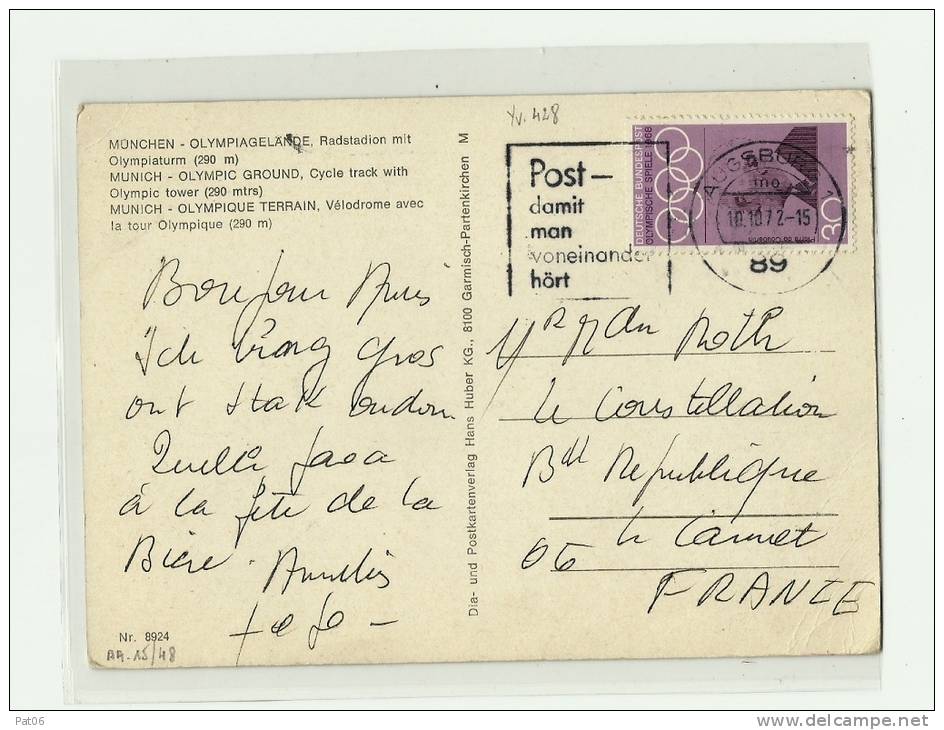 Yv. 428
MÜNCHEN - OLYMPIAGELÄNDE, Radstadion mit
Olympiaturm (290 m)
MUNICH - OLYMPIC GROUND, Cycle track with
Olympic tower (290 mtrs)
MUNICH - OLYMPIQUE TERRAIN, Vélodrome avec
la tour Olympique (290 m)
Bonjour
Ich gros
ont
Quella
à la fête de la
Bière.
Nr. 8924
AA-15/48
Dia- und Postkartenverlag Hans Huber KG., 8100 Garmisch-Partenkirchen M
Post-
damit
man
voneinander
hört
DEUTSCHE BUNDESPOST
OLYMPISCHE SPIELE 1968
30
Pierre de Coubertin
AUGSBURG 1
10.10.72-15
89
Roth
Le Constellation
Bd République
06 Le Cannet
FRANCE
Pat06
www.delcampe.net